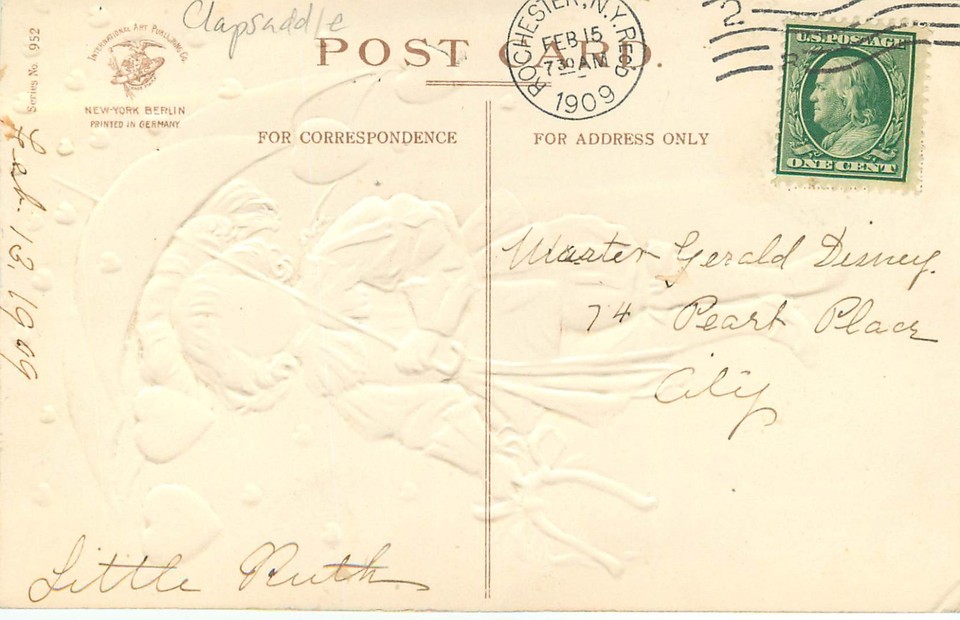 Clapsaddle
Series No. 952
INTERNATIONAL ART PUBLISHING Co.
NEW-YORK BERLIN
PRINTED IN GERMANY.
POST CARD.
ROCHESTER, N.Y.
FEB 15
7 30 AM
1909
U.S. POSTAGE
ONE CENT
FOR CORRESPONDENCE
FOR ADDRESS ONLY
Feb. 13, 1909
Master Gerald Disney.
74 Pearl Place
City
Little Ruth